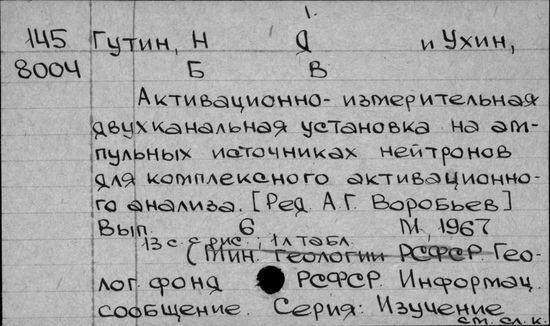 1.
145 Гутин, Н Я и Ухин,
8004 Б В
Активационно-измерительная
двухканальная установка на ам-
пульных источниках нейтронов
для комплексного активационно-
го анализа. [Ред. А.Г. Воробьев]
Вып. 6 М., 1967
13 с. с рис.; 1 л табл.
(Мин. геологии РСФСР Гео-
лог. фонд РСФСР. Информац.
сообщение. Серия: Изучение
см. сл. к.